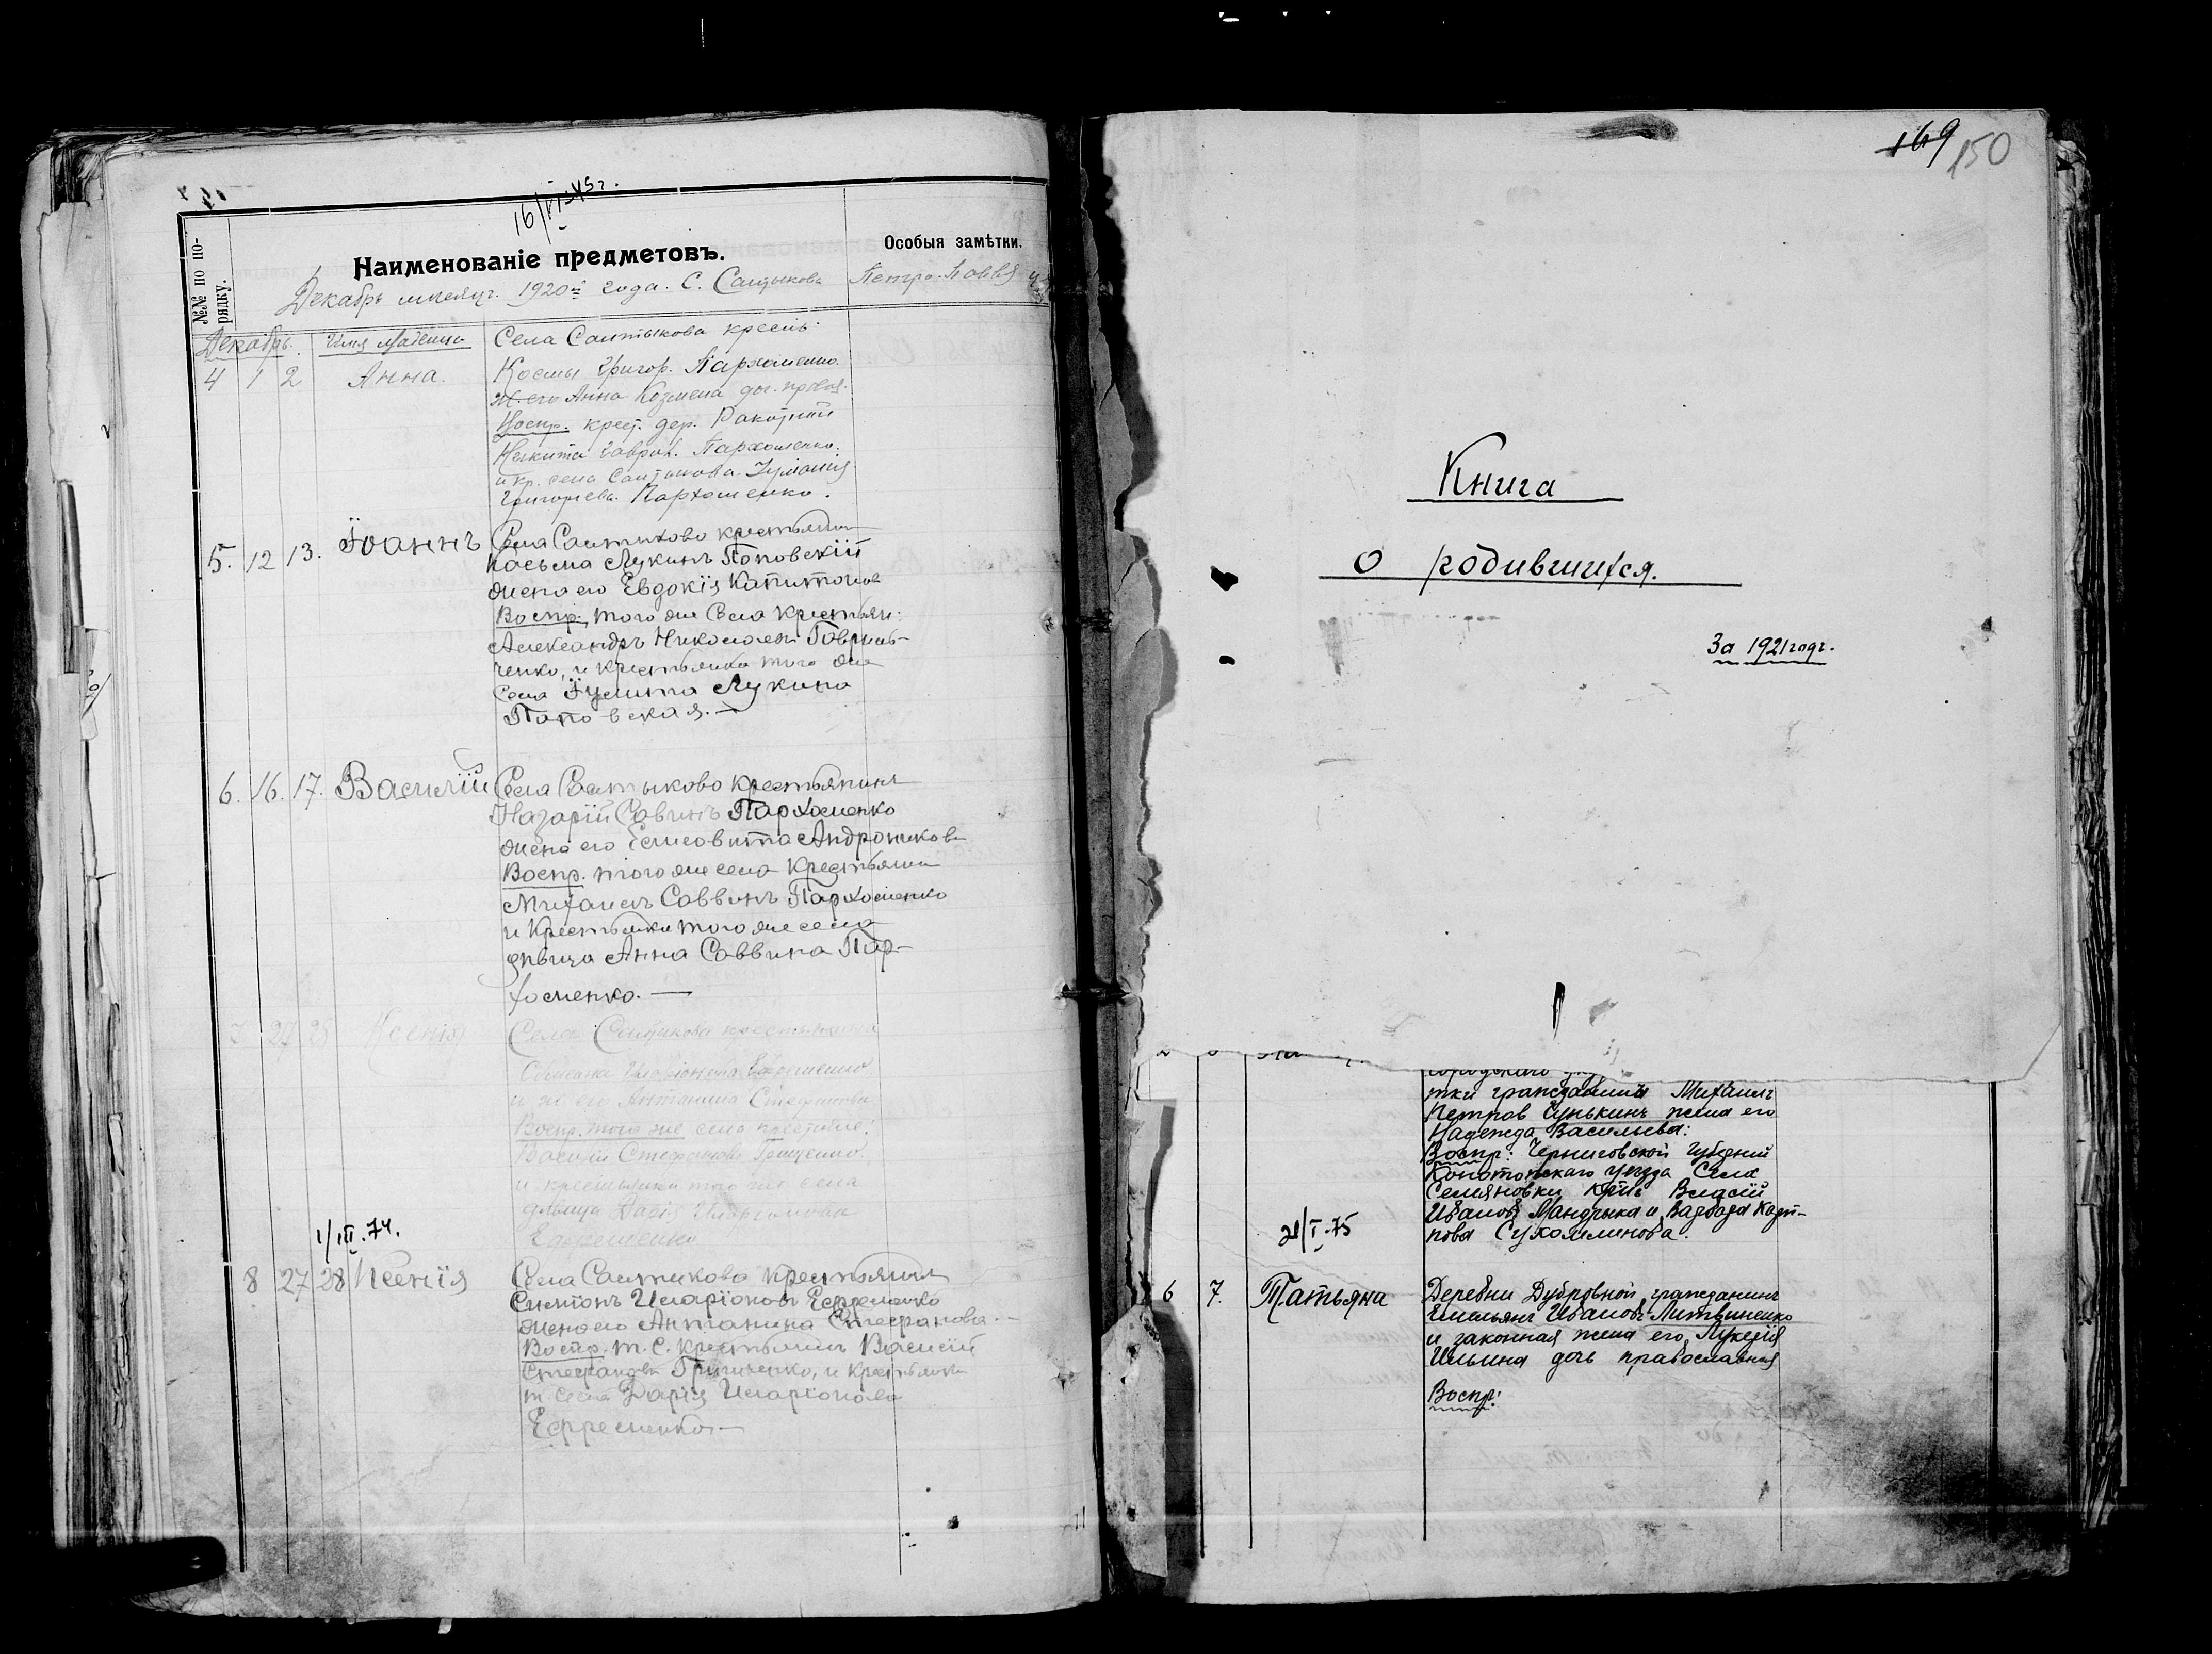 16/VI-45 г.
№№ по по-
рядку.
Наименованіе предметовъ.
Особыя замѣтки.
Декабрь мѣсяцъ. 1920й года. С. Салтыкова
Петро-Павл
Декабрь.
Имя младенца
Села Салтыкова крест:
4 1 2 Анна.
Космы Григор. Пархоменко.
ж. его Анна Козмена
Воспр. крест. дер.
Никита Гаврил. Пархоменко.
и кр. села Салтыкова
Григорьева. Пархоменко.
5. 12 13. Іоаннъ
Села Салтыково крестьянин
Касьма Лукинъ Поповскій
жена его Евдокія Капитонов
Воспр. того же Села крестьян:
Александръ Николаевъ Гавриль-
ченко, и крестьянка того же
Села Іулита Лукина
Поповская. —
6. 16. 17. Василій
Села Салтыково крестьянинъ
Назарій Савинъ Пархоменко
жена его Елисовита Андроникова
Воспр. того же села крестьянин
Михаилъ Саввинъ Пархоменко
и крестьянки того же села
дѣвица Анна Саввина Пар-
хоменко. —
7 27 28 Ксенія
Села Салтыкова крестьянина
и ж. его Антанина Стефанова
Воспр. того же села крестьяне:
Василій Стефановъ Грищенко
и крестьянки того же села
дѣвица Дарія Иларіонова
Ефременко
1/III.74.
8 27 28 Ксенія
Села Салтыково крестьянин
Симіонъ Иларіоновъ Ефременко
жена его Антанина Стефанова. —
Воспр. т. С. крестьянинъ Василій
Стефановъ Грищенко, и крестьянк
т. Села Дарія Иларіонова
Ефременко —
169 150
Книга
о родившихся.
За 1921 годъ.
городскаго
тки гражданинъ Михаилъ
Петров Чунькинъ жена его
Надежда Васильева:
Воспр: Черниговской Губерніи
Конотопскаго уѣзда Села
Семяновки крнъ Власій
Ивановъ Мандрыка и Варвара Карп-
пова Сухомлинова.
21/I.75
6 7. Татьяна
Деревни Дубровной гражданинъ
Емельянъ Ивановъ Литвиненко
и законная жена его Лукерія
Ильина дочь православная
Воспр: